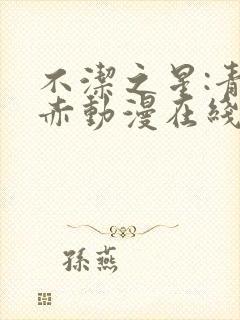 不潔之星:青
赤動漫在綫
孫燕